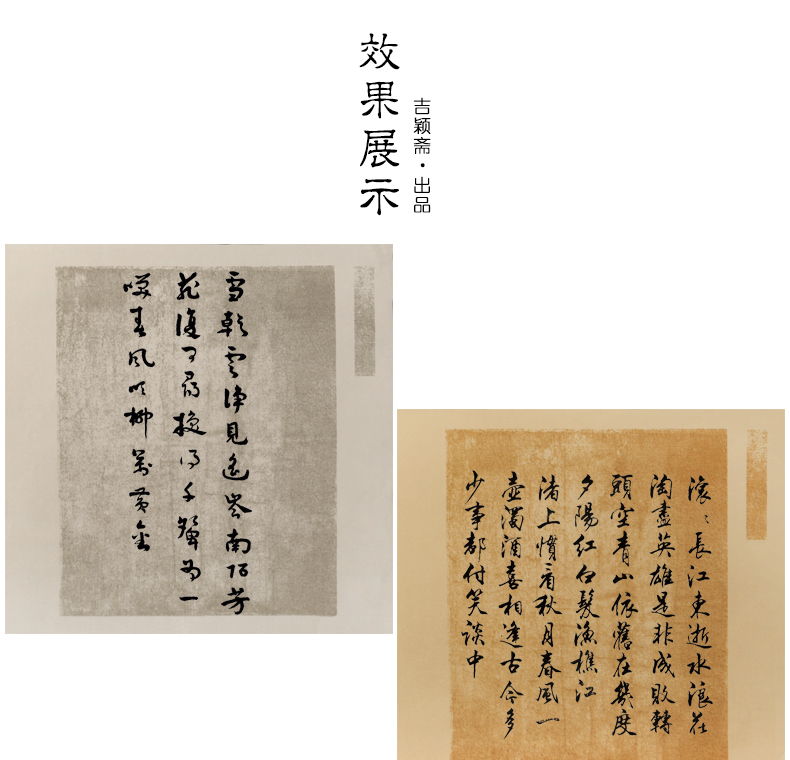 效果展示
吉颖斋·出品
雪乾雲淨見遙岑南陌芳
菲復可尋換得千顰為一
咲春風吹柳萬黃金
滾〻長江東逝水浪花
淘盡英雄是非成敗轉
頭空青山依舊在幾度
夕陽紅白髮漁樵江
渚上慣看秋月春風一
壺濁酒喜相逢古今多
少事都付笑談中